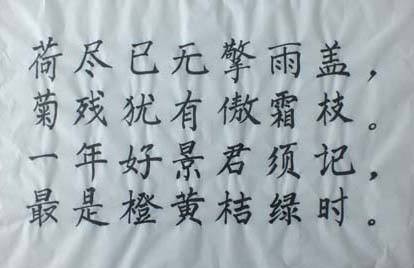 荷尽已无擎雨盖，
菊残犹有傲霜枝。
一年好景君须记，
最是橙黄桔绿时。